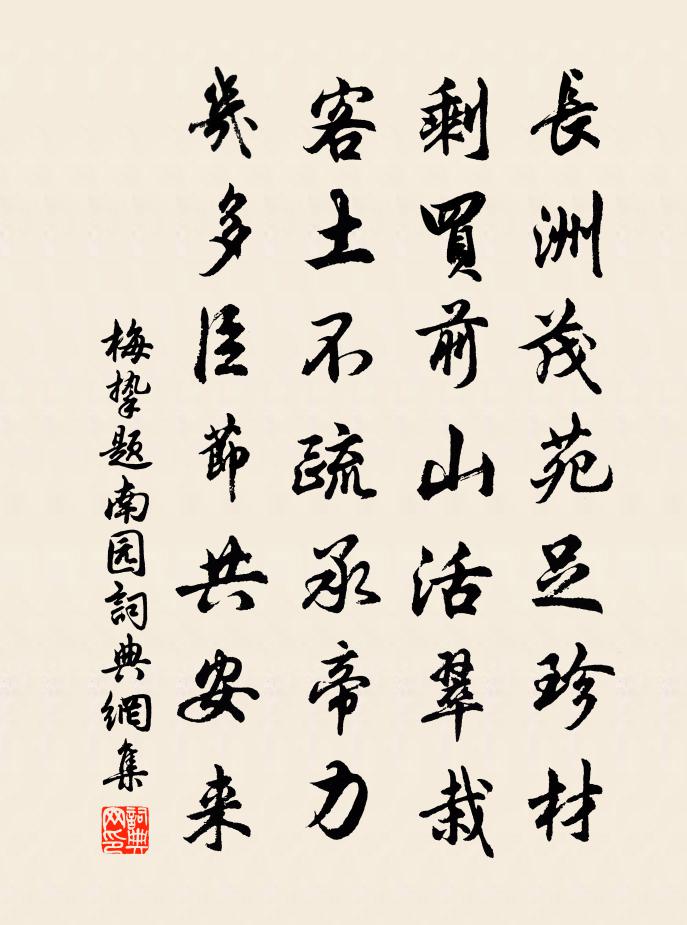 長洲茂苑足珍材
剩買前山活翠栽
客土不疏承帝力
幾多臣節共安来
梅挚题南园詞典網集
詞典网印